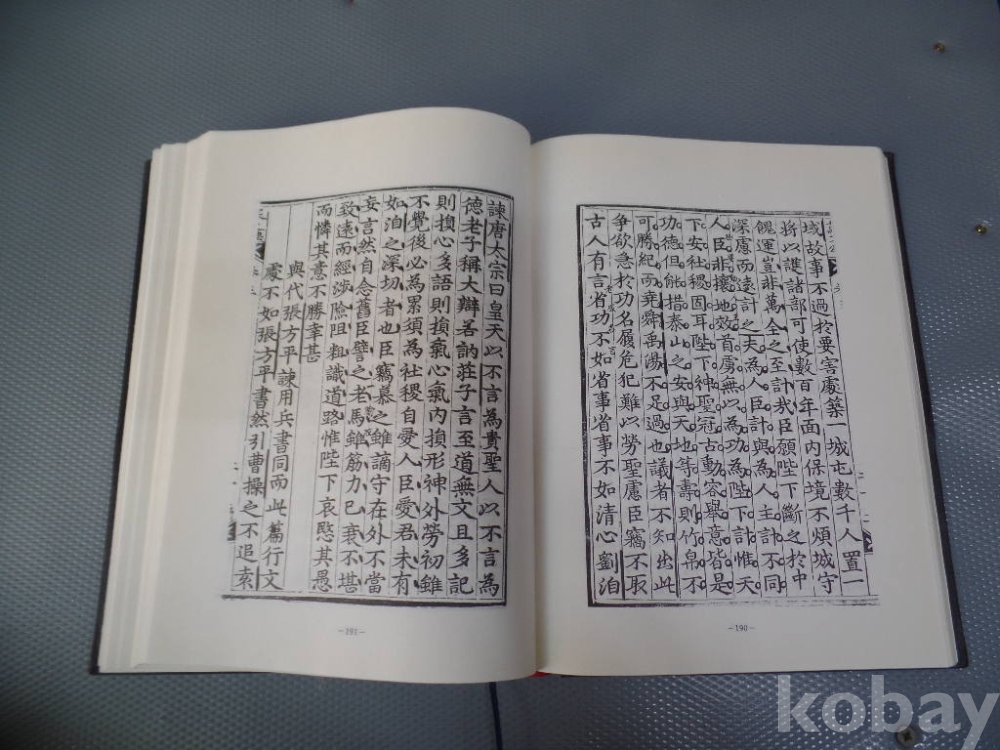 域故事不過於要害處築一城屯數千人置一
將以護諸部可使數百年面內保境不煩城守
餽運豈非萬全之至計哉臣願陛下斷之於中
深慮而遠計之夫為人臣計與為人主計不同
人臣非攘地效首虜無以為功為陛下計惟天
下安社稷固耳陛下神聖冠古動容舉意皆是
功德但能措泰山之安與天地等壽則竹帛不
可勝紀而堯舜禹湯不足過也議者不知出此
爭欲急於功名履危犯難以勞聖慮臣竊不取
古人有言省功不如省事省事不如清心劉洎
-190-
諫唐太宗曰皇天以不言為貴聖人以不言為
德老子稱大辯若訥莊子言至道無文且多記
則損心多語則損氣心氣內損形神外勞初雖
不覺後必為累須為社稷自愛人臣愛君未有
如洎之深切者也臣竊慕之雖謫守在外不當
妄言然自念舊臣譬之老馬雖筋力已衰不堪
致遠而經涉險阻粗識道路惟陛下哀愍其愚
而憐其意不勝幸甚
與代張方平諫用兵書同而此篇行文
處不如張方平書然引曹操之不追索
-191-
kobay